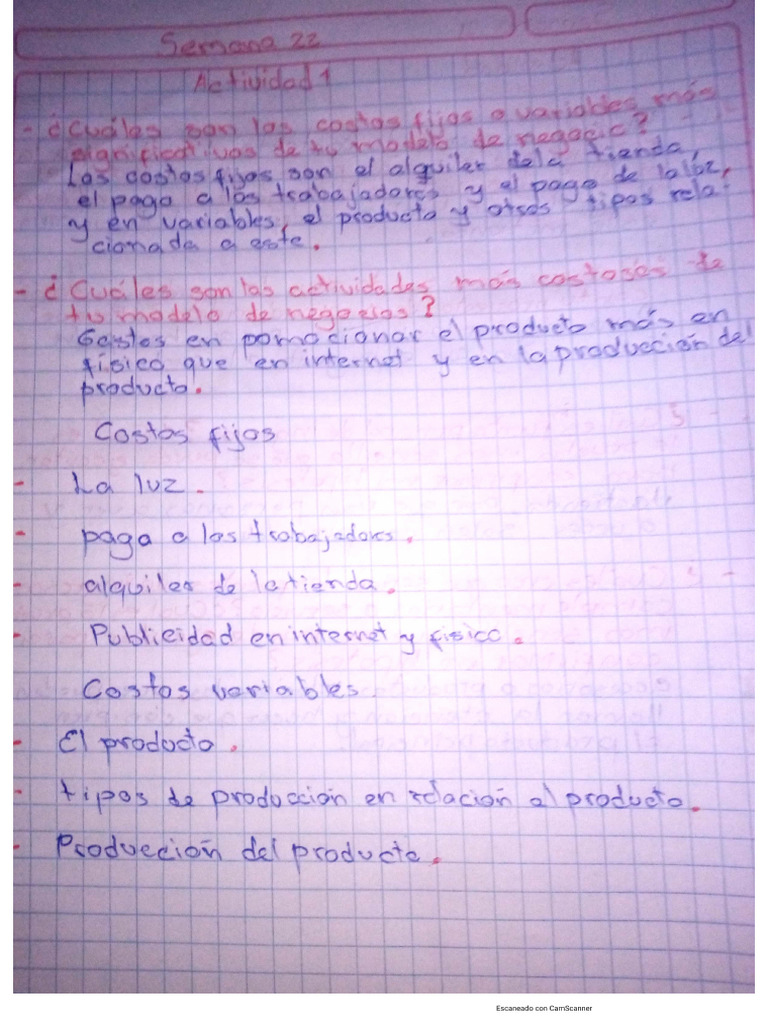 Semana 22
Actividad 1
- ¿Cuáles son los costos fijos o variables más
significativos de tu modelo de negocio?
Los costos fijos son el alquiler dela tienda,
el pago a los trabajadores y el pago de la luz,
y en variables, el producto y otros tipos rela-
cionada a este.
- ¿Cuáles son las actividades más costosas de
tu modelo de negocios?
Gastos en pomocionar el producto más en
físico que en internet y en la producción del
producto.
Costos fijos
- La luz.
- paga a los trabajadores.
- alquiler de la tienda.
- Publicidad en internet y fisico.
Costos variables
- El producto.
- tipos de producción en relación al producto.
- Producción del producto.
Escaneado con CamScanner